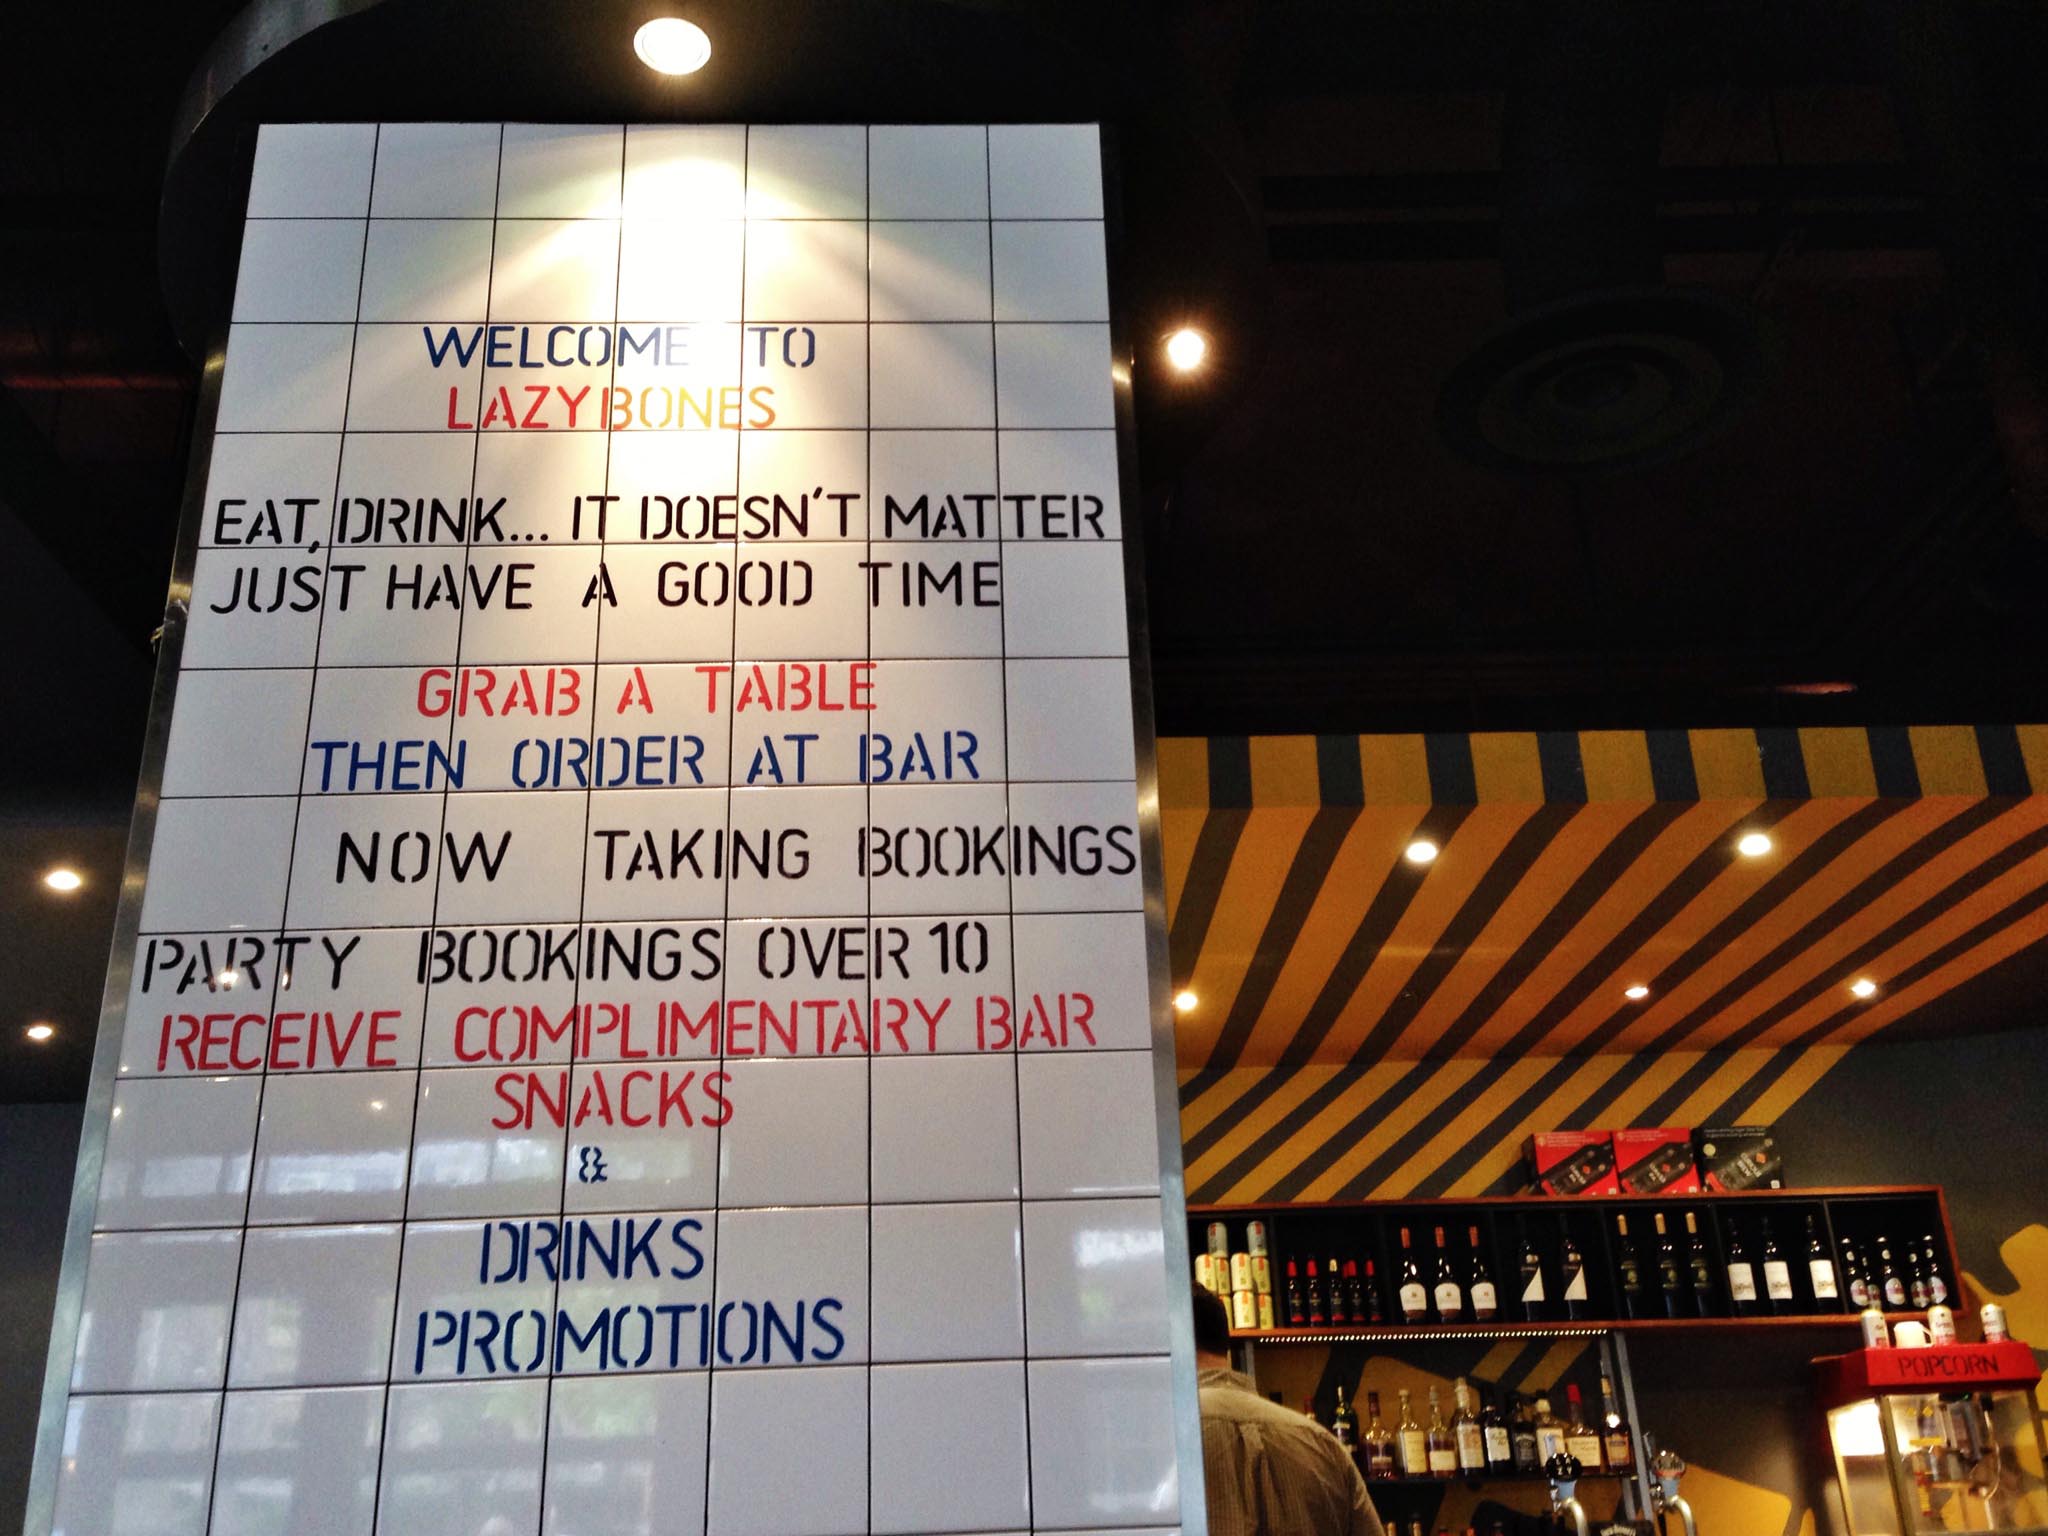 WELCOME TO
LAZYBONES
EAT, DRINK... IT DOESN'T MATTER
JUST HAVE A GOOD TIME
GRAB A TABLE
THEN ORDER AT BAR
NOW TAKING BOOKINGS
PARTY BOOKINGS OVER 10
RECEIVE COMPLIMENTARY BAR
SNACKS
&
DRINKS
PROMOTIONS
POPCORN